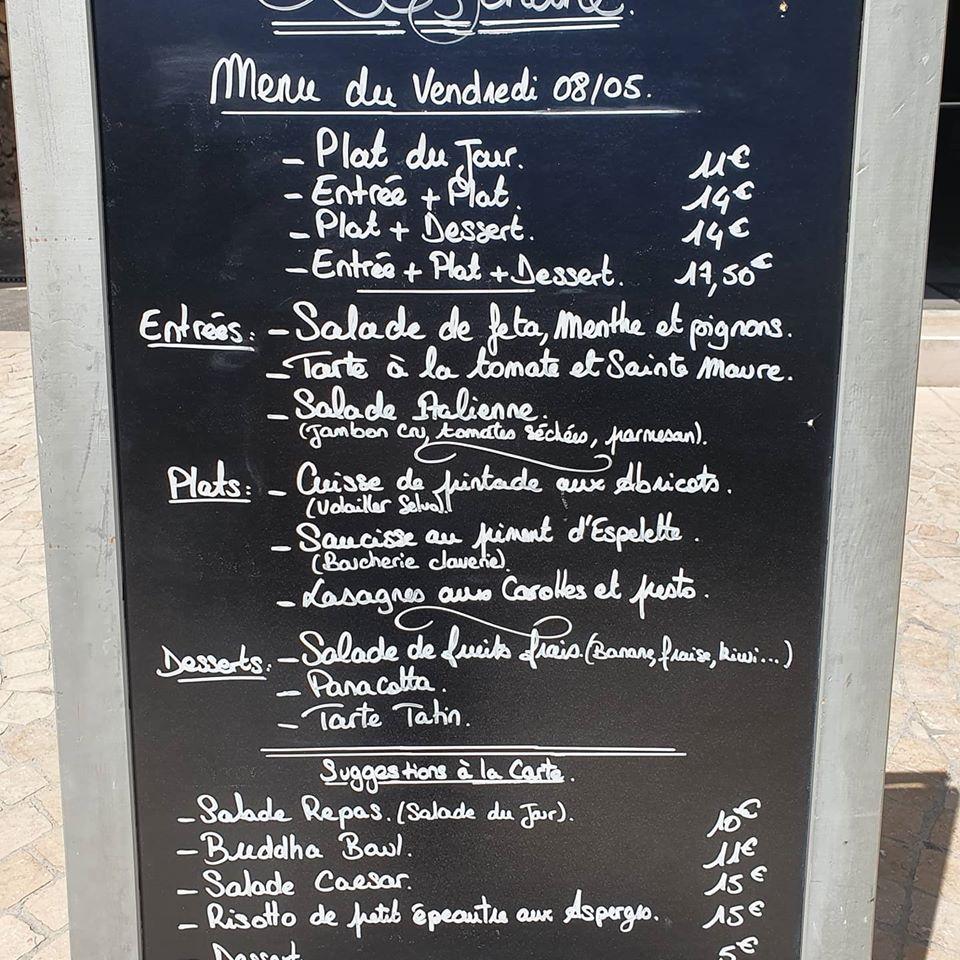 Menu du Vendredi 08/05.
- Plat du Jour. 11€
- Entrée + Plat. 14€
- Plat + Dessert. 14€
- Entrée + Plat + Dessert. 17,50€
Entrées: - Salade de feta, Menthe et pignons.
- Tarte à la tomate et Sainte Maure.
- Salade Italienne.
(Jambon Cru, tomates séchées, parmesan).
Plats: - Cuisse de pintade aux Abricots.
(Volailler Selva)
- Saucisse au piment d'Espelette.
(Boucherie claverie).
- Lasagnes aux Carottes et pesto.
Desserts: - Salade de fruits frais (Banane, fraise, kiwi...)
- Panacotta.
- Tarte Tatin.
Suggestions à la Carte.
- Salade Repas. (Salade du Jour). 10€
- Buddha Bowl. 11€
- Salade Caesar. 15€
- Risotto de petit épeautre aux Asperges. 15€
- Dessert 5€